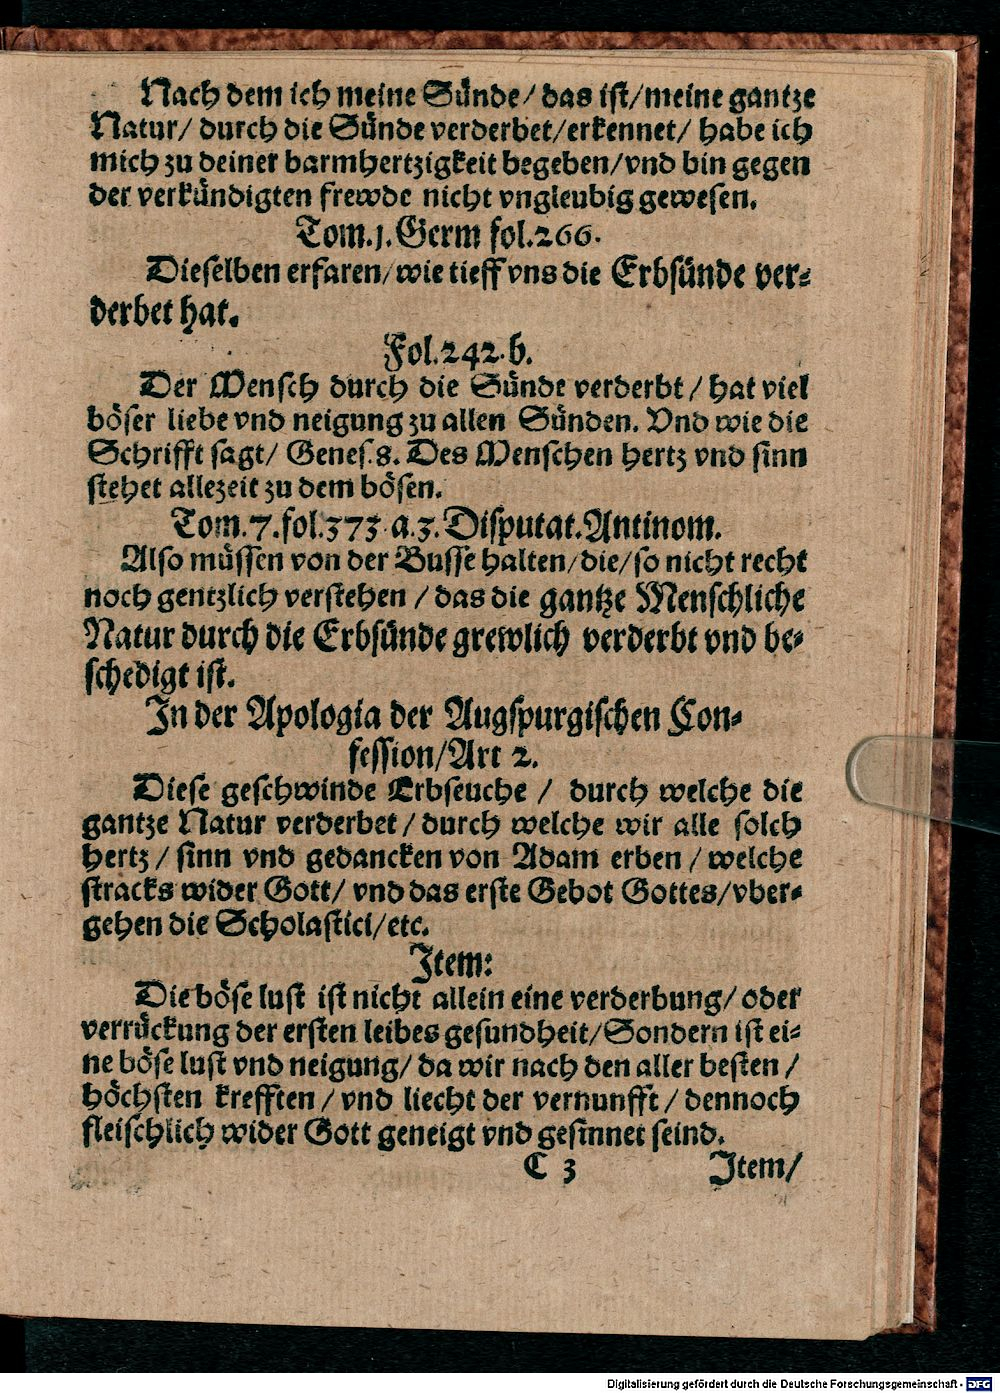 Nach dem ich meine Sünde/ das ist/ meine gantze
Natur/ durch die Sünde verderbet/ erkennet/ habe ich
mich zu deiner barmhertzigkeit begeben/ vnd bin gegen
der verkündigten frewde nicht vngleubig gewesen.
Tom.1. Germ fol.266.
Dieselben erfaren/ wie tieff vns die Erbsünde ver-
derbet hat.
Fol.242.b.
Der Mensch durch die Sünde verderbt/ hat viel
böser liebe vnd neigung zu allen Sünden. Vnd wie die
Schrifft sagt/ Genes.8. Des Menschen hertz vnd sinn
stehet allezeit zu dem bösen.
Tom.7.fol.373.a.3. Disputat. Antinom.
Also müssen von der Busse halten/ die/ so nicht recht
noch gentzlich verstehen/ das die gantze Menschliche
Natur durch die Erbsünde grewlich verderbt vnd be-
schedigt ist.
In der Apologia der Augspurgischen Con-
fession/ Art 2.
Diese geschwinde Erbseuche/ durch welche die
gantze Natur verderbet/ durch welche wir alle solch
hertz/ sinn vnd gedancken von Adam erben/ welche
stracks wider Gott/ vnd das erste Gebot Gottes/ vber-
gehen die Scholastici/ etc.
Item:
Die böse lust ist nicht allein eine verderbung/ oder
verrückung der ersten leibes gesundheit/ Sondern ist ei-
ne böse lust vnd neigung/ da wir nach den aller besten/
höchsten krefften/ vnd liecht der vernunfft/ dennoch
fleischlich wider Gott geneigt vnd gesinnet seind.
C 3 Item/
Digitalisierung gefördert durch die Deutsche Forschungsgemeinschaft - DFG